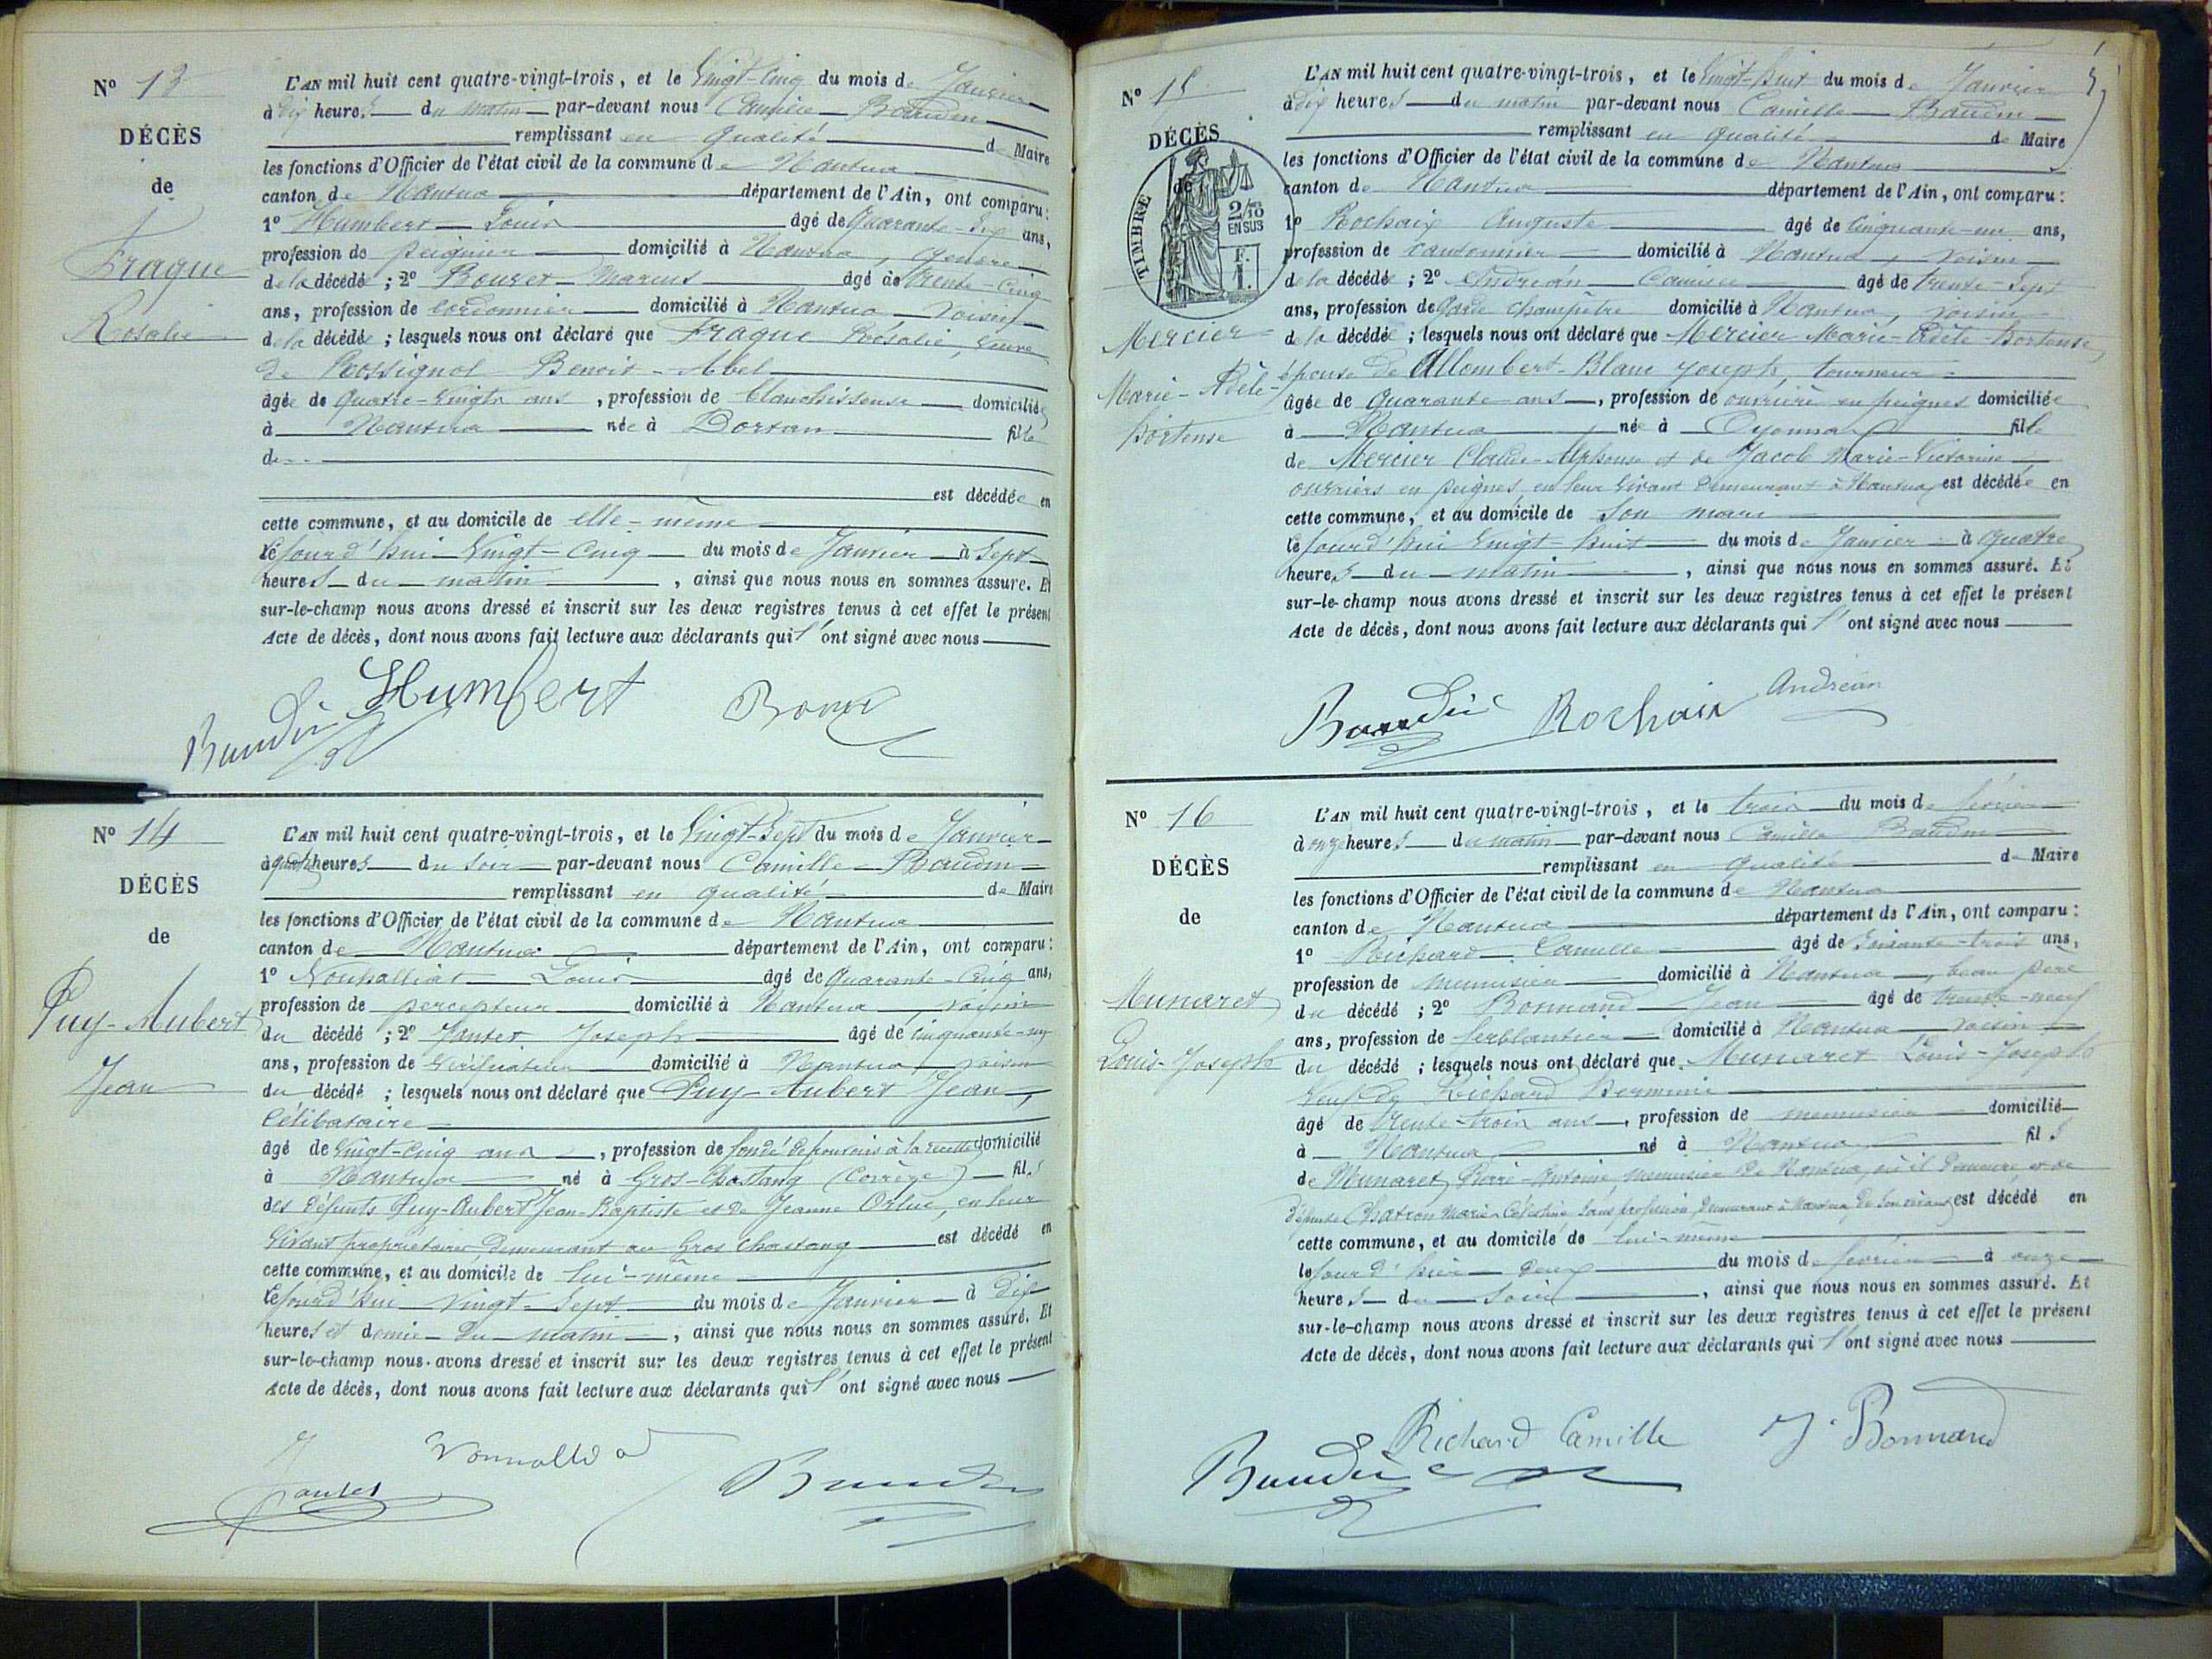 N° 13
DÉCÈS
de
Fraque
Rosalie
L'AN mil huit cent quatre-vingt-trois, et le Vingt-Cinq du mois de Janvier
à dix heures du matin par-devant nous Camille Baudin
remplissant en qualité de Maire
les fonctions d'Officier de l'état civil de la commune de Nantua
canton de Nantua département de l'Ain, ont comparu:
1° Humbert Louis âgé de Quarante-Six ans,
profession de peignier domicilié à Nantua, gendre
de la décédée; 2° Bouret Marius âgé de trente-Cinq
ans, profession de cordonnier domicilié à Nantua, voisin
de la décédée; lesquels nous ont déclaré que Fraque Rosalie, veuve
de Rossignol Benoit-Abel
âgée de Quatre-Vingts ans, profession de blanchisseuse domiciliée
à Nantua née à Dortan fille
de
est décédée en
cette commune, et au domicile de elle-même
le Jourd'hui Vingt-Cinq du mois de Janvier à Sept
heures du matin, ainsi que nous nous en sommes assuré. Et
sur-le-champ nous avons dressé et inscrit sur les deux registres tenus à cet effet le présent
Acte de décès, dont nous avons fait lecture aux déclarants qui l'ont signé avec nous
Humbert
Baudin
N° 14
DÉCÈS
de
Puy-Aubert
Jean
L'AN mil huit cent quatre-vingt-trois, et le Vingt-Sept du mois de Janvier
à quatre heures du soir par-devant nous Camille Baudin
remplissant en qualité de Maire
les fonctions d'Officier de l'état civil de la commune de Nantua
canton de Nantua département de l'Ain, ont comparu:
1° Louis âgé de Quarante-Cinq ans,
profession de percepteur domicilié à Nantua voisin
du décédé; 2° Janter Joseph âgé de Cinquante-un
ans, profession de Vérificateur domicilié à Nantua, voisin
du décédé; lesquels nous ont déclaré que Puy-Aubert Jean,
Célibataire
âgé de Vingt-Cinq ans, profession de fondé de pouvoirs à la recette domicilié
à Nantua né à Gros-Chastang (Corrèze) fils
des défunts Puy-Aubert Jean-Baptiste et de Jeanne Orluc, en leur
Vivant propriétaires demeurant au Gros Chastang est décédé en
cette commune, et au domicile de lui-même
le Jourd'hui Vingt-Sept du mois de Janvier à Dix
heures et demie du matin, ainsi que nous nous en sommes assuré. Et
sur-le-champ nous avons dressé et inscrit sur les deux registres tenus à cet effet le présent
Acte de décès, dont nous avons fait lecture aux déclarants qui l'ont signé avec nous
Baudin
N° 15
DÉCÈS
de
TIMBRE
2/10
EN SUS
F.
1.
Mercier
Marie-Adèle-
Hortense
L'AN mil huit cent quatre-vingt-trois, et le Vingt-huit du mois de Janvier
à dix heures du matin par-devant nous Camille Baudin
remplissant en qualité de Maire
les fonctions d'Officier de l'état civil de la commune de Nantua
canton de Nantua département de l'Ain, ont comparu:
1° Rochaix Auguste âgé de Cinquante-un ans,
profession de cantonnier domicilié à Nantua, voisin
de la décédée; 2° Andréan Camille âgé de trente-Sept
ans, profession de Garde Champêtre domicilié à Nantua, voisin
de la décédée; lesquels nous ont déclaré que Mercier Marie-Adèle-Hortense,
épouse de Allombert-Blanc Joseph, tourneur
âgée de Quarante ans, profession de ouvrière en peignes domiciliée
à Nantua née à Oyonnax fille
de Mercier Claude-Alphonse et de Jacob Marie-Victorine
ouvriers en peignes en leur Vivant Demeurant à Nantua, est décédée en
cette commune, et au domicile de Son mari
le Jourd'hui Vingt-huit du mois de Janvier à Quatre
heures du matin, ainsi que nous nous en sommes assuré. Et
sur-le-champ nous avons dressé et inscrit sur les deux registres tenus à cet effet le présent
Acte de décès, dont nous avons fait lecture aux déclarants qui l'ont signé avec nous
Baudin Rochaix Andréan
N° 16
DÉCÈS
de
Munaret
Louis-Joseph
L'AN mil huit cent quatre-vingt-trois, et le trois du mois de février
à onze heures du matin par-devant nous Camille Baudin
remplissant en qualité de Maire
les fonctions d'Officier de l'état civil de la commune de Nantua
canton de Nantua département de l'Ain, ont comparu:
1° Richard Camille âgé de Soixante-trois ans,
profession de menuisier domicilié à Nantua, beau père
du décédé; 2° Bonnard Jean âgé de trente-neuf
ans, profession de ferblantier domicilié à Nantua voisin
du décédé; lesquels nous ont déclaré que Munaret Louis-Joseph
Veuf de Richard Hermine
âgé de trente-trois ans, profession de menuisier domicilié
à Nantua né à Nantua fils
de Munaret Pierre-Antoine, menuisier de Nantua, où il demeure et de
défunte Chatron Marie-Célestine sans profession, demeurant à Nantua de son vivant est décédé en
cette commune, et au domicile de lui-même
le Jour d'hier Deux du mois de février à onze
heures du Soir, ainsi que nous nous en sommes assuré. Et
sur-le-champ nous avons dressé et inscrit sur les deux registres tenus à cet effet le présent
Acte de décès, dont nous avons fait lecture aux déclarants qui l'ont signé avec nous
Richard Camille J. Bonnard
Baudin